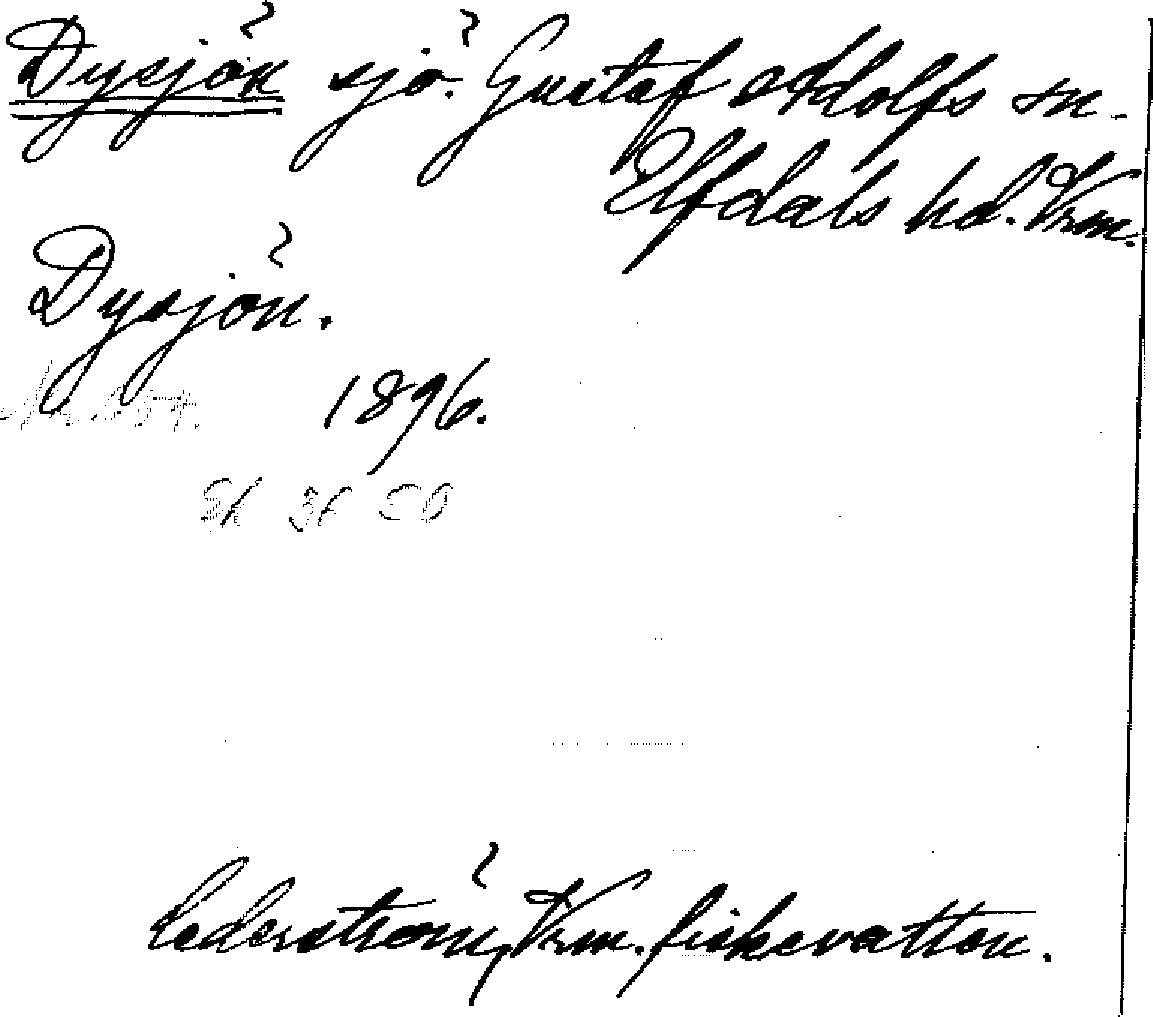 Dysjön sjö. Gustaf Adolfs sn.
Elfdals hd. Vrm.
Dysjön.
1896.
Cederström, Vrm. fiskevatten.